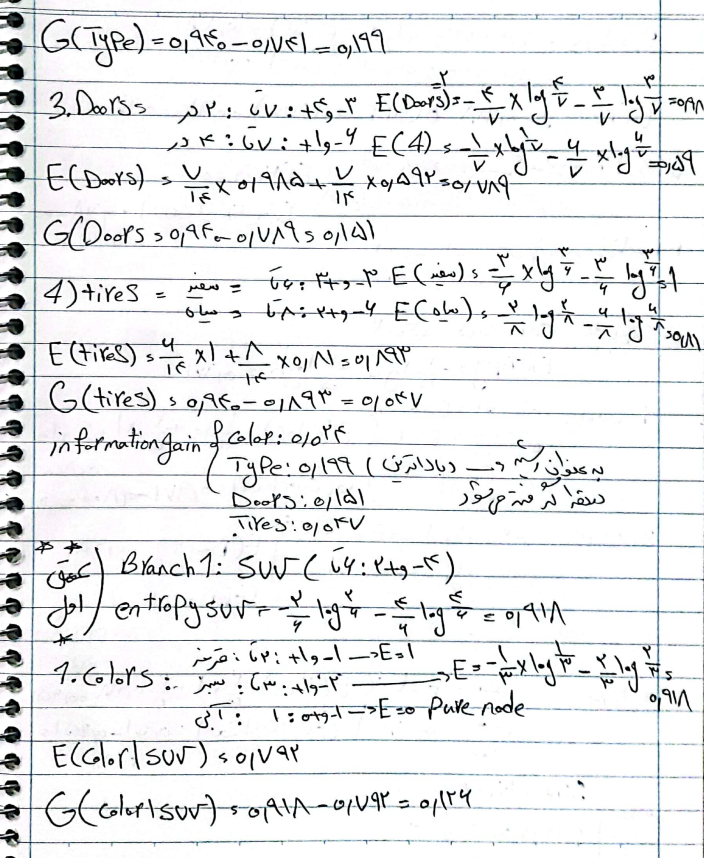 G(Type) = ۰,۹۴۰ - ۰,۷۴۱ = ۰,۱۹۹
3. Doors = ۲ در : ۷تا : +۴و-۳ E(Doors=۲) = -۴/۷ × log ۴/۷ - ۳/۷ log ۳/۷ = ۰,۹۸
۴ در : ۷تا : +۱و-۶ E(4) = -۱/۷ × log ۱/۷ - ۶/۷ × log ۶/۷ = ۰,۵۹
E(Doors) = ۷/۱۴ × ۰,۹۸۵ + ۷/۱۴ × ۰,۵۹۲ = ۰,۷۸۹
G(Doors = ۰,۹۴۰ - ۰,۷۸۹ = ۰,۱۵۱
4) tires = سفید = ۶تا : +۳و-۳ E(سفید) = -۳/۶ × log ۳/۶ - ۳/۶ log ۳/۶ = 1
سیاه = ۸تا : +۲و-۶ E(سیاه) = -۲/۸ log ۲/۸ - ۶/۸ log ۶/۸ = ۰,۸۱
E(tires) = ۶/۱۴ × ۱ + ۸/۱۴ × ۰,۸۱ = ۰,۸۹۳
G(tires) = ۰,۹۴۰ - ۰,۸۹۳ = ۰,۰۴۷
information gain { Color: ۰,۰۲۴
Type: ۰,۱۹۹ (بالاترین) → به عنوان ریشه
Doors: ۰,۱۵۱ در نظر گرفته می شود
Tires: ۰,۰۴۷
** عمق اول * ) Branch 1: SUV (۶تا : +۲و-۴)
entropy SUV = -۲/۶ log ۲/۶ - ۴/۶ log ۴/۶ = ۰,۹۱۸
1. Colors : قرمز : ۲تا : +۱و-۱ → E=1
سبز : ۳تا : +۱و-۲ → E = -۱/۳ × log ۱/۳ - ۲/۳ log ۲/۳ = ۰,۹۱۸
آبی : ۱ : +۰و-۱ → E=0 Pure node
E(Color|SUV) = ۰,۷۹۲
G(Color|SUV) = ۰,۹۱۸ - ۰,۷۹۲ = ۰,۱۲۶